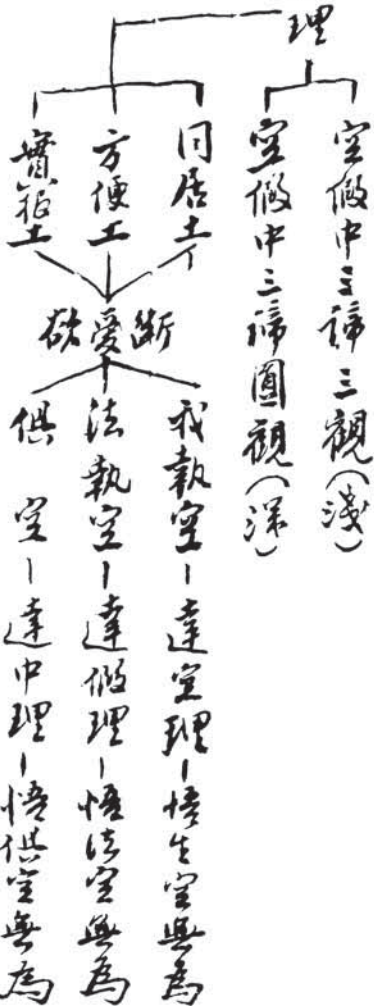 理
空假中三諦三觀(淺)
空假中三諦圓觀(深)
同居土
方便土
實報土
斷愛欲
我執空-達空理-悟生空無為
法執空-達假理-悟法空無為
俱空-達中理-悟俱空無為